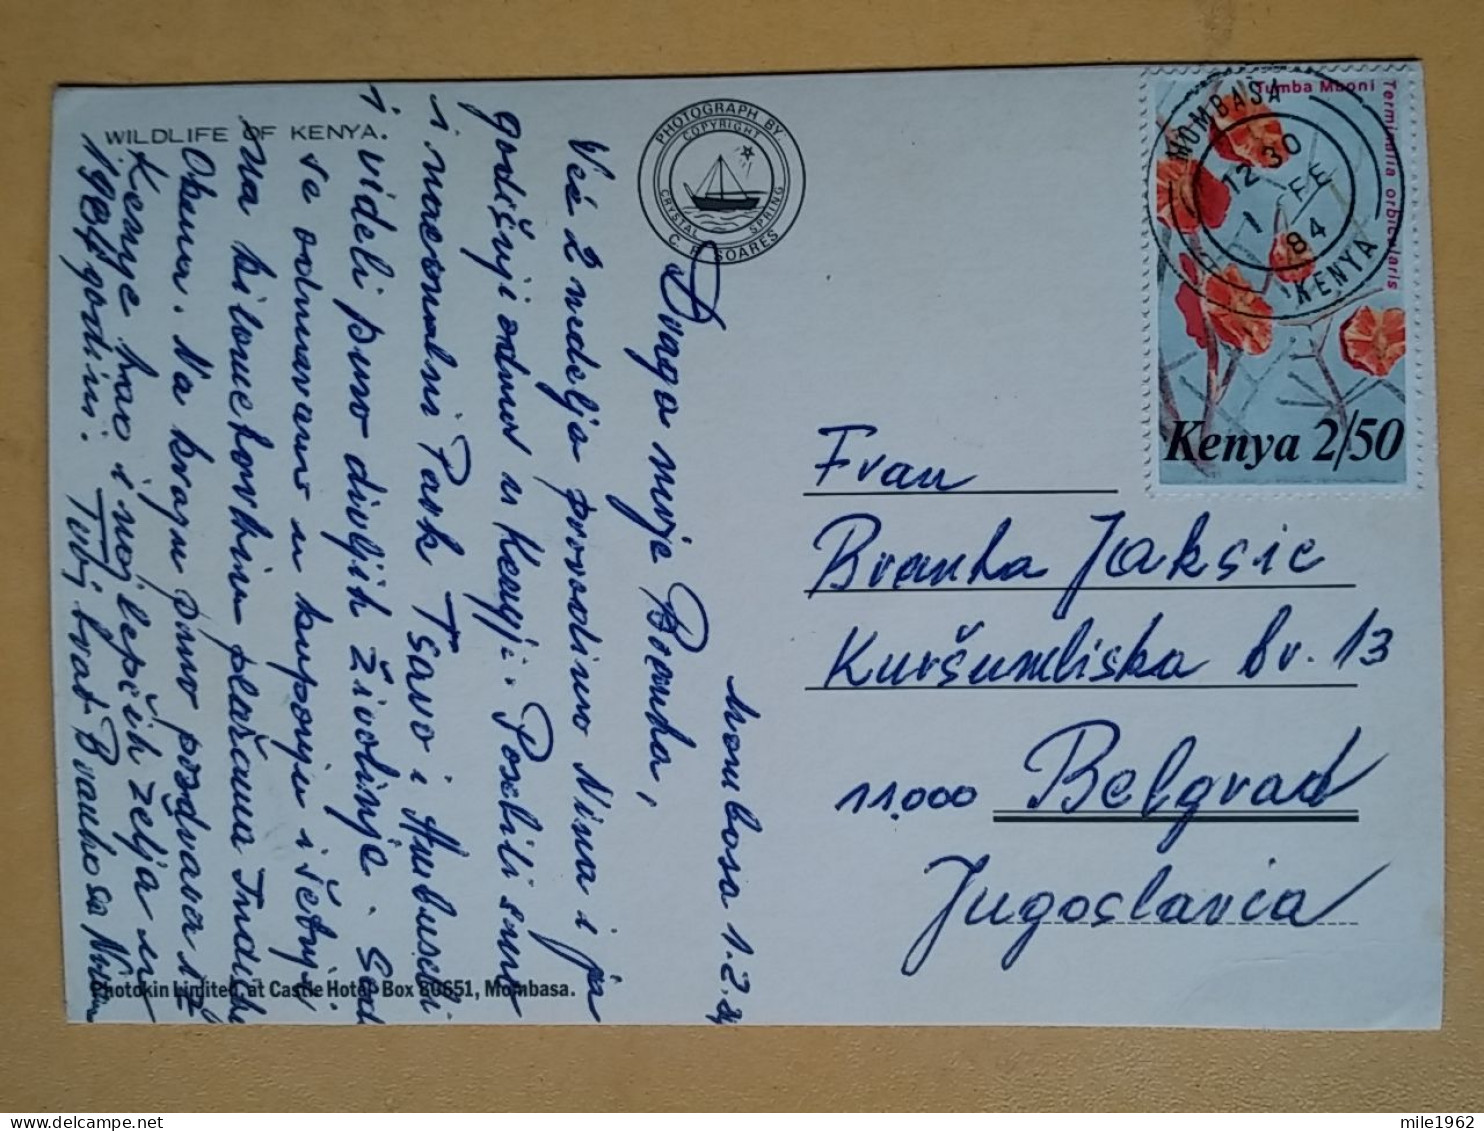 WILDLIFE OF KENYA.
PHOTOGRAPH BY
COPYRIGHT
CRYSTAL SPRING
C. F. SOARES
Mombasa 1.2.84
Draga moja Branka,
Već 2 nedelja provodimo Nina i ja
godišnji odmor u Kenyi. Posetili smo
i nacionalni Park Tsavo i Ambuseli
i videli puno divljih životinje. Sad
se odmaramo u kupanju i šetnji
na bilouetovkim plažama Indisk
Okeana. Na kraju puno pozdrava iz
Kenye kao i najlepših zelja u
1984 godini. Tvoj brat Branko sa Ninom
Photokin Limited, at Castle Hotel Box 80651, Mombasa.
Tumba Mboni
Terminalia orbicularis
MOMBASA
12 30
1 FE
84
KENYA
Kenya 2/50
Frau
Branka Jaksic
Kuršumliska br. 13
11.000 Belgrad
Jugoslavia
mile1962